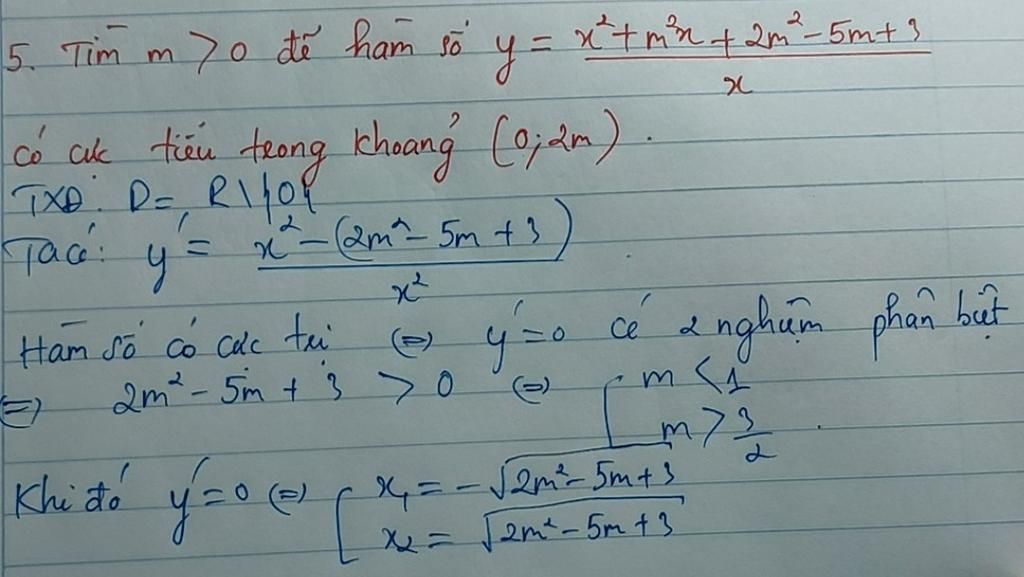 5. Tìm m > 0 để hàm số y = \frac{x^2 + m^2x + 2m^2 - 5m + 3}{x}
có cực tiểu trong khoảng (0; 2m).
TXĐ: D = R\{0}
Ta có: y' = \frac{x^2 - (2m^2 - 5m + 3)}{x^2}
Hàm số có cực trị ⇔ y' = 0 có 2 nghiệm phân biệt
⇔ 2m^2 - 5m + 3 > 0 ⇔ [ m < 1
m > \frac{3}{2}.
Khi đó y' = 0 ⇔ [ x_1 = -\sqrt{2m^2 - 5m + 3}
x_2 = \sqrt{2m^2 - 5m + 3}